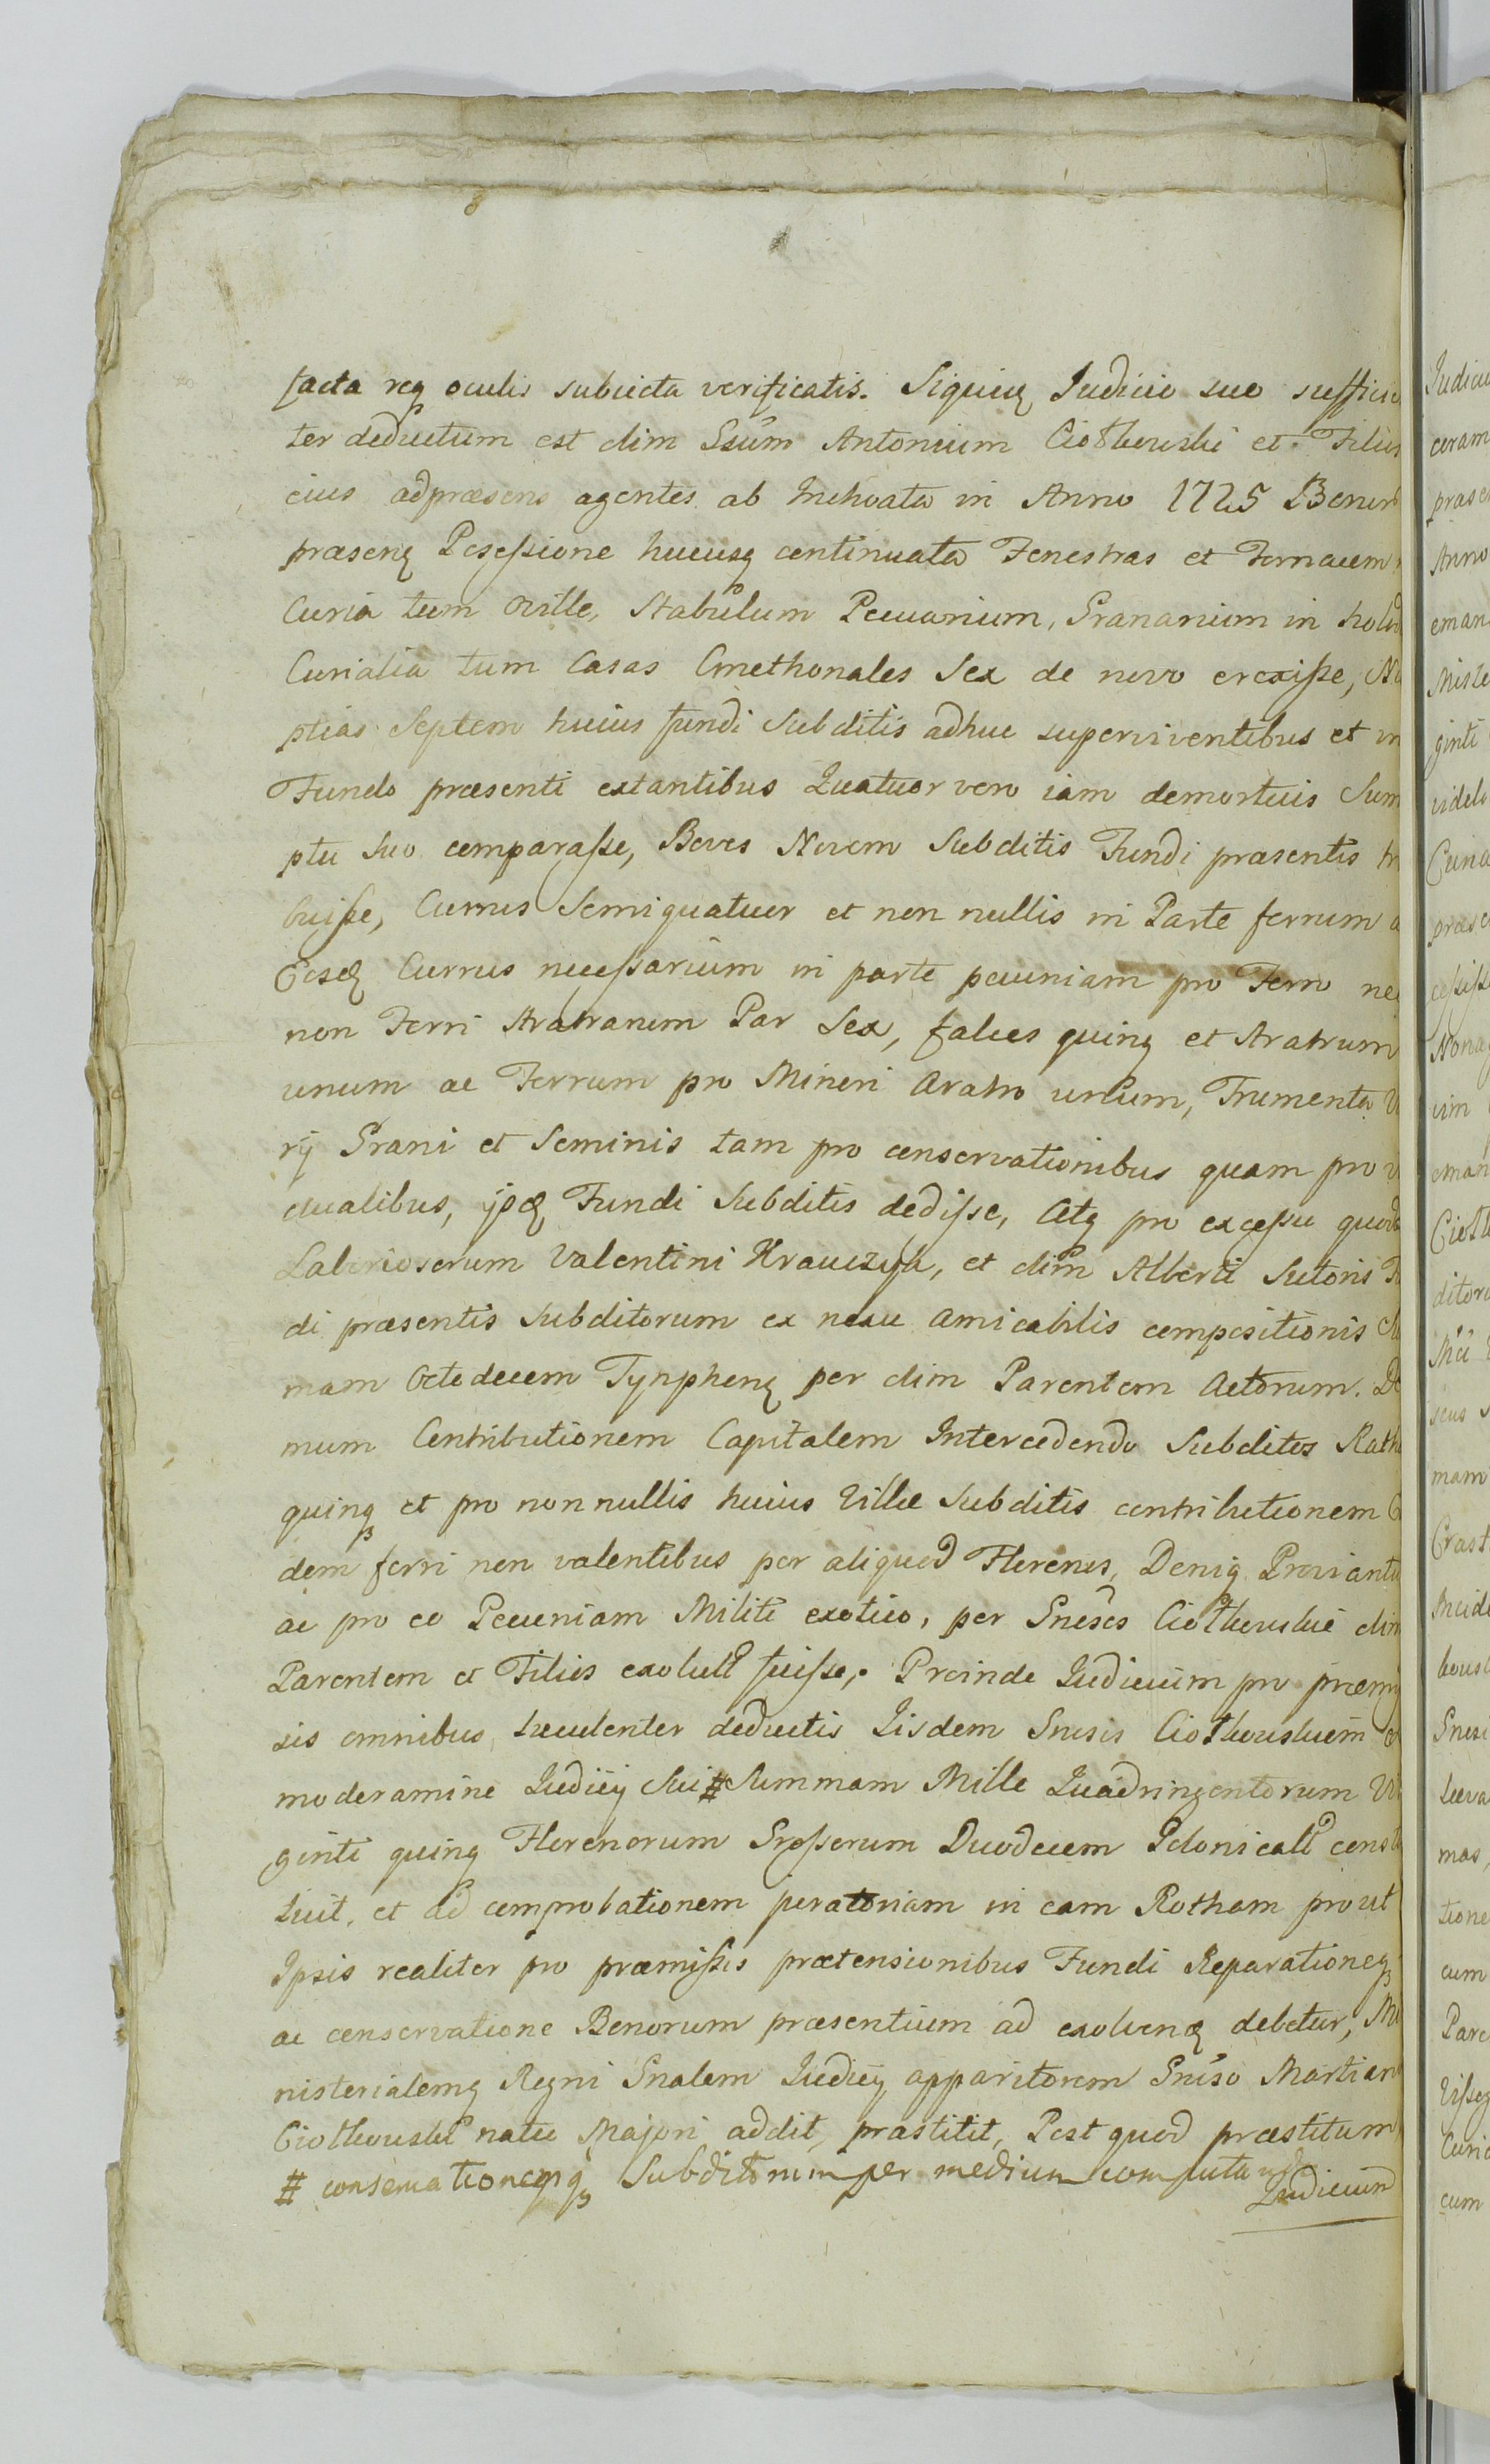 facta reg oculis subiecta verificatis. Siquidem Judicio suo sufficien
ter deductum est olim Gsum Antonium Ciothowski et Filios
eius ad præsens agentes ab Inchoata in Anno 1725 Bonor
præsenq Possessione hucusq continuata Fenestras et Fornacem
Curia tum Oville, Stabulum Pecuarium, Granarium in
Curialia tum Casas Cmethonales Sex de novo erexisse, Nu
ptias Septem huius fundi Subditis adhuc superviventibus et in
Fundo præsenti extantibus Quatuor vero iam demortuis Sum
ptu Suo comparasse, Boves Novem Subditis Fundi præsentis tri
buisse, Currus Semiquatuor et non nullis in Parte ferrum a
Eosq Currus necessarium in parte pecuniam pro Ferro nec
non Ferri Aratrarum Par Sex, falces quinq et Aratrum
unum ac Ferrum pro Minori Aratro unum, Frumenta V
rij Grani et Seminis tam pro conservationibus quam pro
ctualibus, Fundi Subditis dedisse, Atq pro excessu
Laboriosorum Valentini Krawczyk, et olim Alberti Sutoris
di præsentis Subditorum ex nexu amicabilis compositionis
mam Octodecem Tynphonq per olim Parentem Actorum. De
mum Contributionem Capitalem Intercedendo Subditos
quinq et pro nonnullis huius Villæ Subditis contributionem
dem ferri non valentibus per aliquod Florenos, Deniq Proviantu
ac pro eo Pecuniam Militi exotico, per Gnesos Ciothowskie olim
Parentem et Filios exolut fuisse. Proinde Judicium pro præmi
sis omnibus, luculenter deductis Iisdem Gnesis Ciothowskiem
moderamine Judicij Sui # Summam Mille Quadringentorum Vi
ginti quinq Florenorum Grossorum Duodecem Polonicalium consti
tuit, et ad comprobationem juratoriam in eam Rotham prout
Ipsis realiter pro præmissis prætensionibus Fundi Reparationeq
ac conservatione Bonorum præsentium ad exolvend debetur, Mi
nisterialemq Regni Gnalem Judicij apparitorem Gneso Martian
Ciothowski natu Majori addit, præstitit, Post quod præstitum
# conservationemq Subditorum per medium computand
Judicium